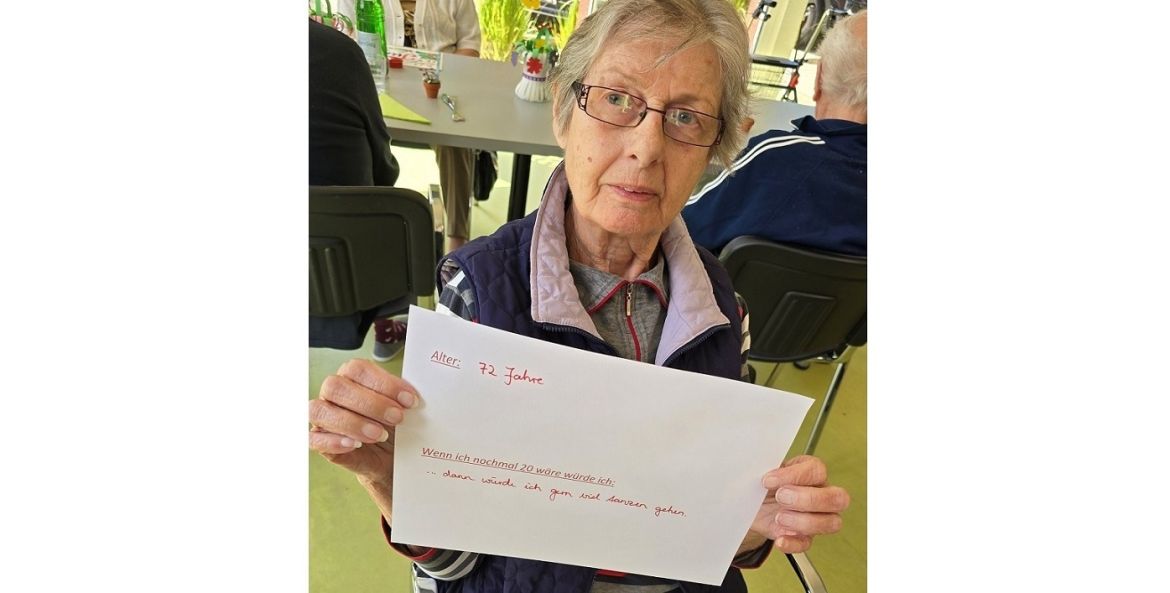 Alter: 72 Jahre
Wenn ich nochmal 20 wäre würde ich:
... dann würde ich gern viel tanzen gehen.